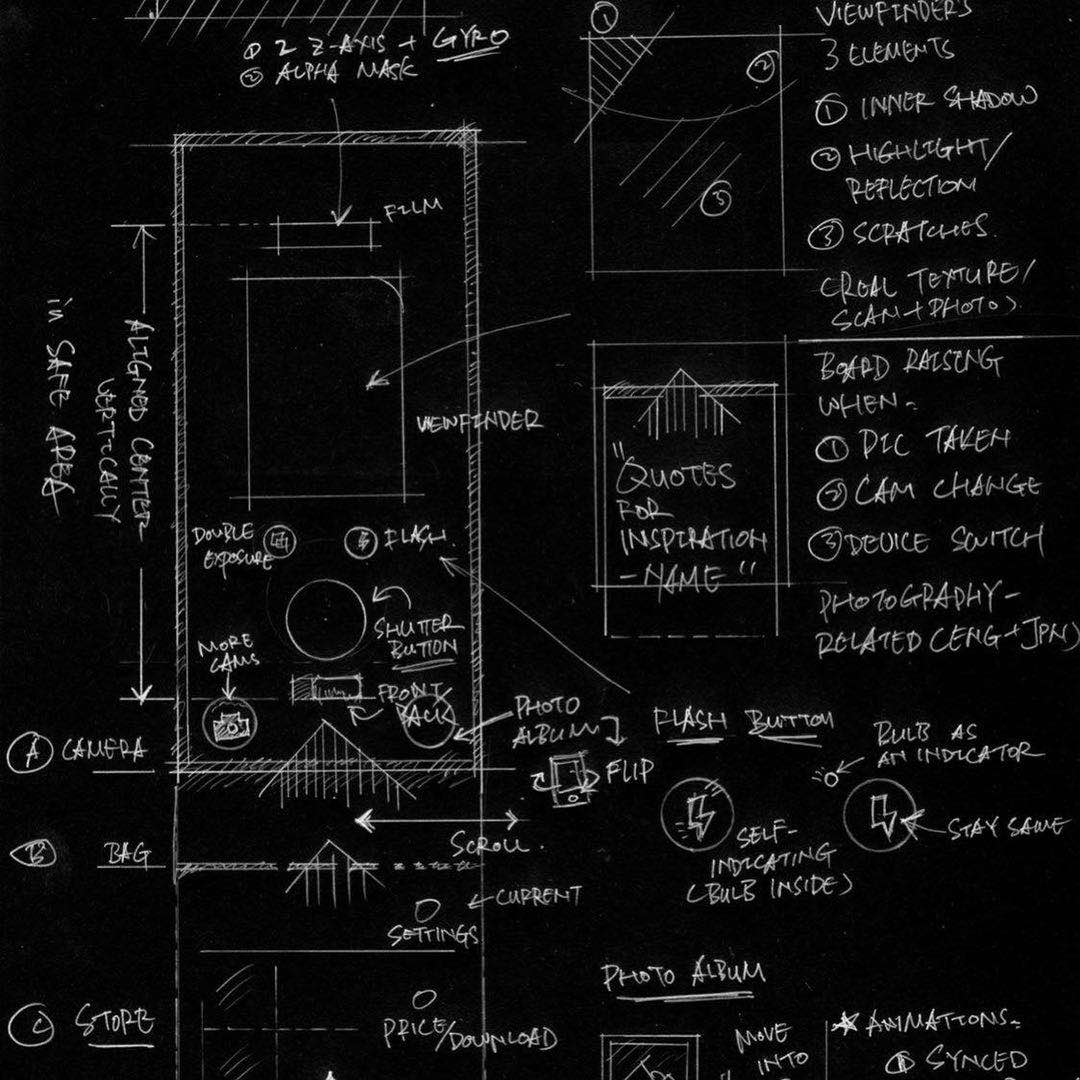 ① 2 Z-AXIS + GYRO
② ALPHA MASK
FILM
ALIGNED CENTER
VERTICALLY
in SAFE AREA
VIEWFINDER
DOUBLE
EXPOSURE
FLASH.
SHUTTER
BUTTON
MORE
CAMS
FRONT
BACK
PHOTO
ALBUM
FLIP
Ⓐ CAMERA
SCROLL.
Ⓑ BAG
CURRENT
SETTINGS
Ⓒ STORE
PRICE/DOWNLOAD
①
②
③
VIEWFINDER'S
3 ELEMENTS
① INNER SHADOW
② HIGHLIGHT/
REFLECTION
③ SCRATCHES.
(REAL TEXTURE/
SCAN+PHOTO).
"QUOTES
FOR
INSPIRATION
-NAME"
BOARD RAISING
WHEN-
① PIC TAKEN
② CAM CHANGE
③ DEVICE SWITCH
PHOTOGRAPHY-
RELATED (ENG+JPN)
FLASH BUTTON
BULB AS
AN INDICATOR
STAY SAME
SELF-
INDICATING
(BULB INSIDE)
PHOTO ALBUM
MOVE
INTO
* ANIMATIONS-
① SYNCED